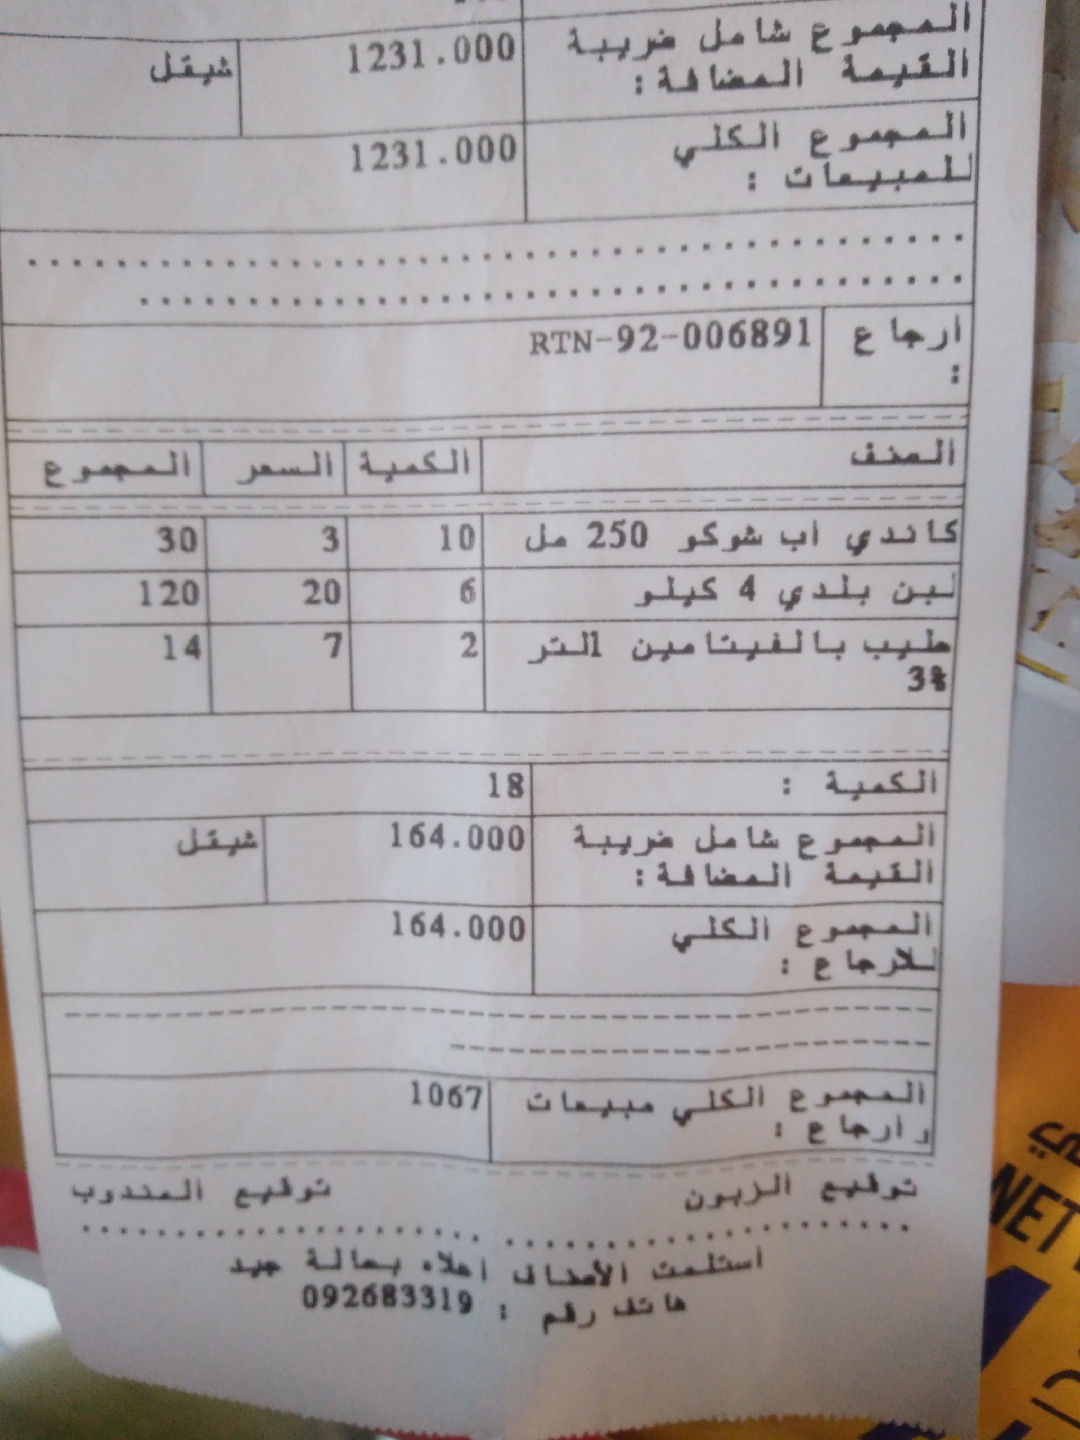 المجموع شامل ضريبة 1231.000 شيقل
القيمة المضافة:
المجموع الكلي 1231.000
للمبيعات :
ارجاع RTN-92-006891
:
الصنف الكمية السعر المجموع
كاندي اب شوكو 250 مل 10 3 30
لبن بلدي 4 كيلو 6 20 120
حليب بالفيتامين 1لتر 2 7 14
3%
الكمية : 18
المجموع شامل ضريبة 164.000 شيقل
القيمة المضافة:
المجموع الكلي 164.000
للارجاع :
المجموع الكلي مبيعات 1067
وارجاع :
توقيع الزبون توقيع المندوب
استلمت الأصناف اعلاه بحالة جيد
هاتف رقم : 092683319
NET